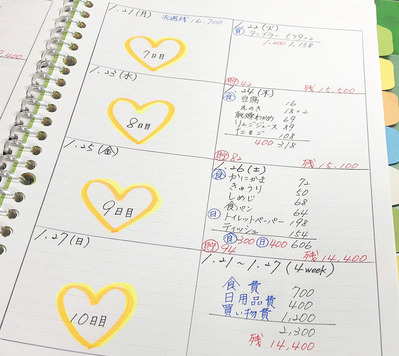 1.21(月)
次週残 16,700
7日目
22(火)
1.200 1.158
貯42
残 15,500
1.23(水)
8日目
24(木)
食 豆腐 16
えのき 18×2
乾燥わかめ 69
りんごジュース 89
いちご 108
400 318
貯82
残 15,100
1.25(金)
9日目
1.26(土)
食 かにかま 72
きゅうり 50
しめじ 68
食パン 64
日 トイレットペーパー 198
ティッシュ 154
食300 日400 606
貯94
残 14,400
1.27(日)
10日目
1.21~1.27(4week)
食費 700
日用品費 400
買い物費 1,200
2,300
残 14,400